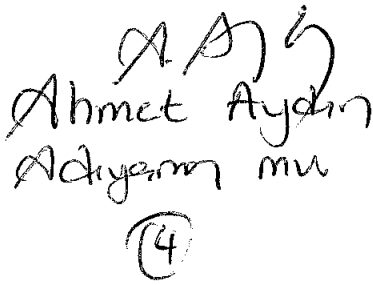 Ahmet Aydın
Adıyaman mv
4